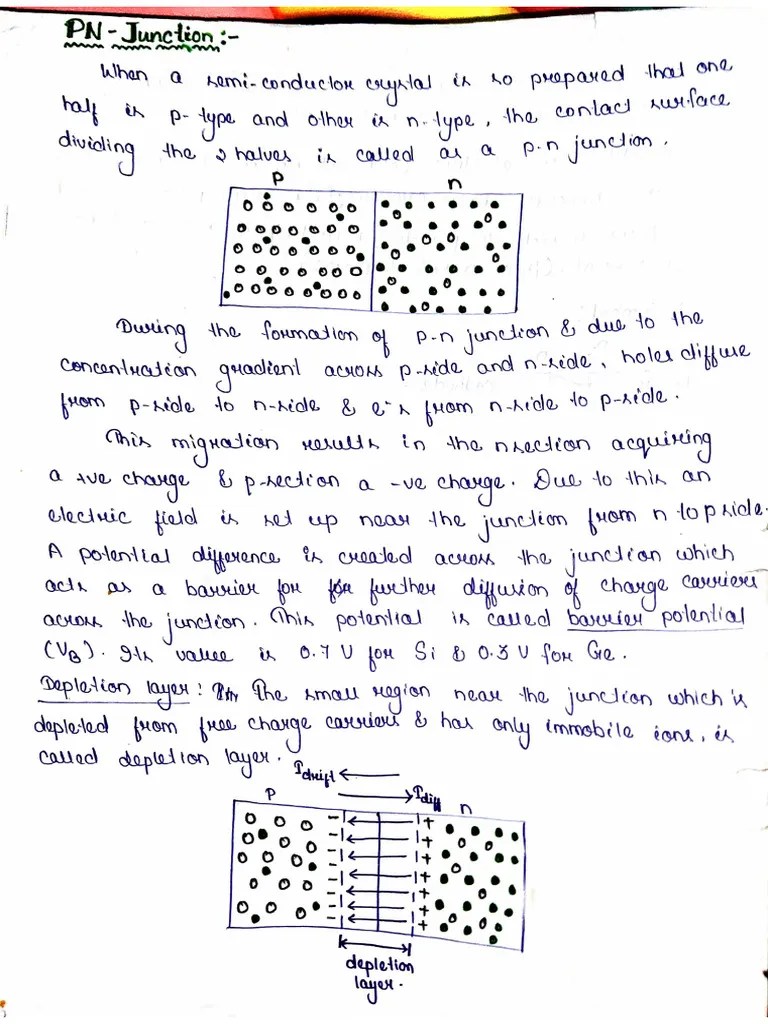 PN-Junction:-
When a semi-conductor crystal is so prepared that one
half is p-type and other is n-type, the contact surface
dividing the 2 halves is called as a p.n junction.
P n
During the formation of p-n junction & due to the
concentration gradient across p-side and n-side, holes diffuse
from p-side to n-side & e⁻s from n-side to p-side.
This migration results in the nsection acquiring
a +ve charge & p-section a -ve charge. Due to this an
electric field is set up near the junction from n to p side.
A potential difference is created across the junction which
acts as a barrier for for further diffusion of charge carriers
across the junction. This potential is called barrier potential
(VB). Its value is 0.7 V for Si & 0.3 V for Ge.
Depletion layer: The small region near the junction which is
depleted from free charge carriers & has only immobile ions, is
called depletion layer.
Idrift
Idiff
P n
depletion
layer.